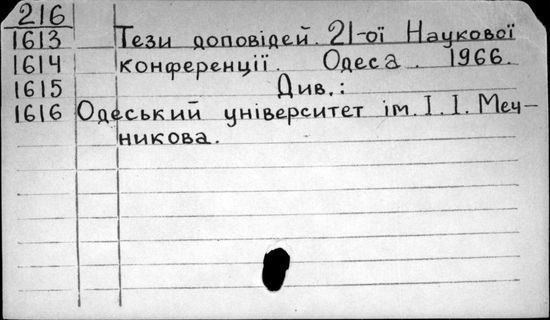 216
1613 Тези доповідей 21-ої Наукової
1614 конференції. Одеса. 1966.
1615 Див.:
1616 Одеський університет ім. І. І. Меч-
никова.